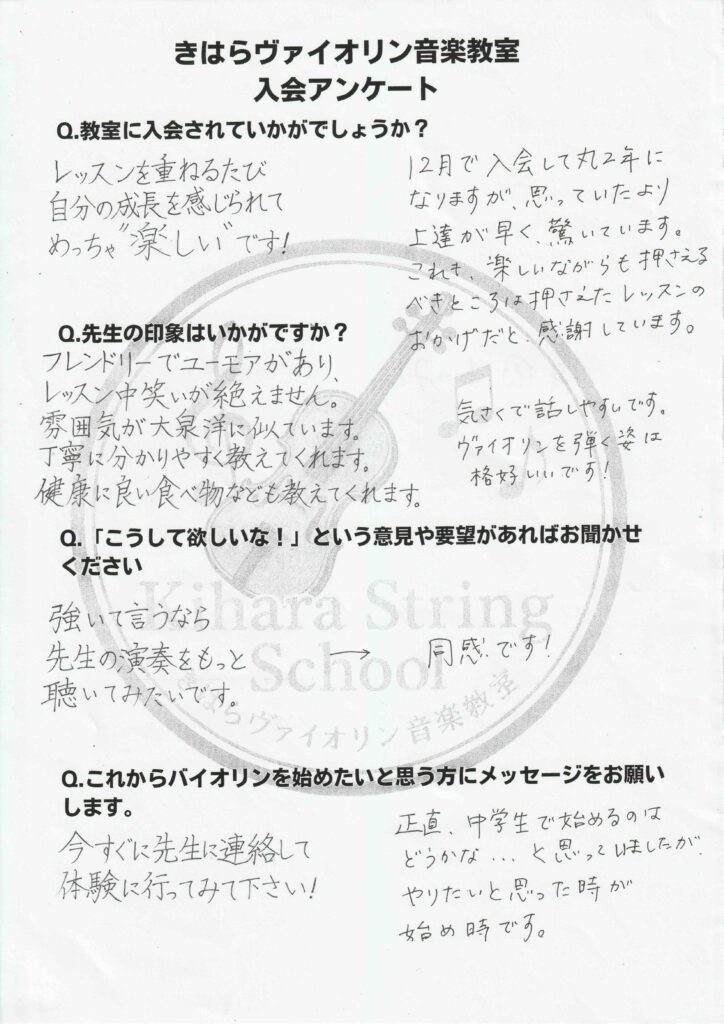 きはらヴァイオリン音楽教室
入会アンケート
Q.教室に入会されていかがでしょうか？
レッスンを重ねるたび
自分の成長を感じられて
めっちゃ"楽しい"です!
12月で入会して丸2年に
なりますが、思っていたより
上達が早く、驚いています。
これも、楽しいながらも押さえる
べきところは押さえたレッスンの
おかげだと、感謝しています。
Q.先生の印象はいかがですか？
フレンドリーでユーモアがあり、
レッスン中笑いが絶えません。
雰囲気が大泉洋に似ています。
丁寧に分かりやすく教えてくれます。
健康に良い食べ物なども教えてくれます。
気さくで話しやすいです。
ヴァイオリンを弾く姿は
格好いいです!
Q.「こうして欲しいな！」という意見や要望があればお聞かせ
ください
強いて言うなら
先生の演奏をもっと
聴いてみたいです。
→ 同感です!
Kihara String
School
きはらヴァイオリン音楽教室
Q.これからバイオリンを始めたいと思う方にメッセージをお願い
します。
今すぐに先生に連絡して
体験に行ってみて下さい!
正直、中学生で始めるのは
どうかな...と思っていましたが、
やりたいと思った時が
始め時です。